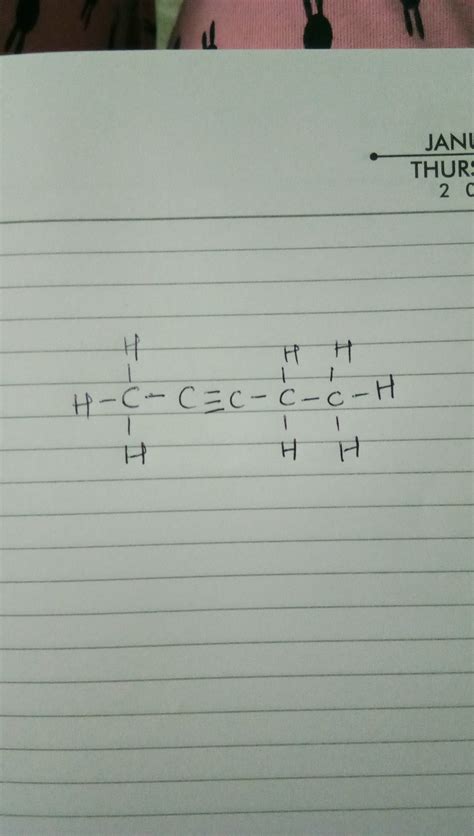 JANU
THURS
2 0
H H H
H-C-C≡C-C-C-H
H H H